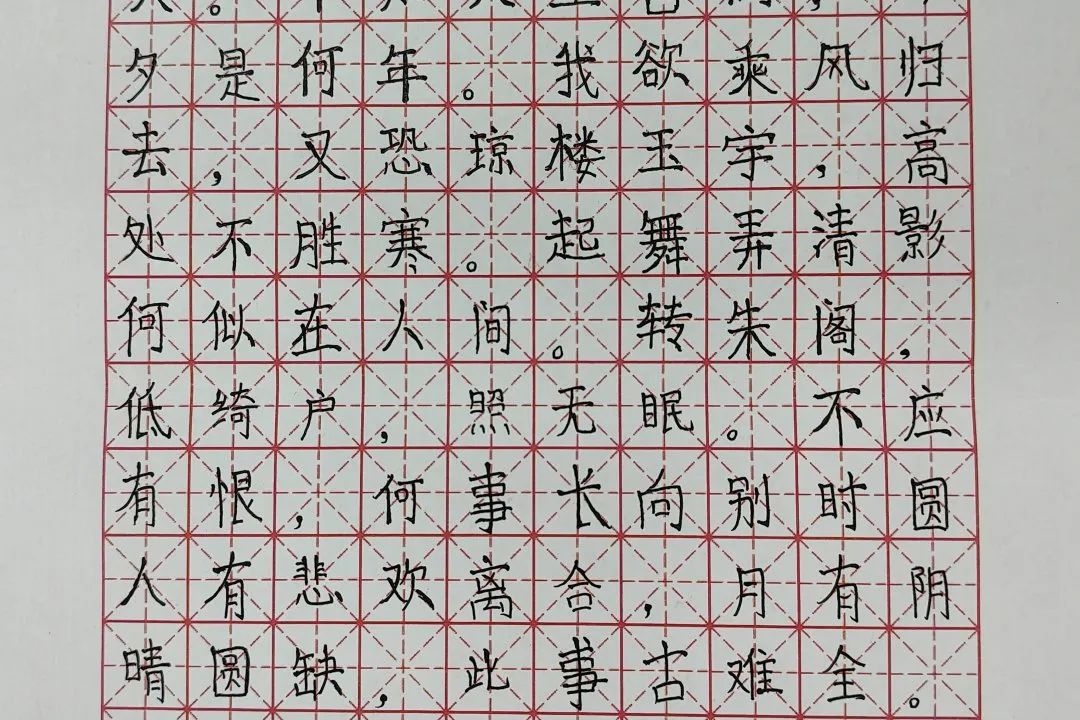 夕是何年。我欲乘风归
去，又恐琼楼玉宇，高
处不胜寒。起舞弄清影
何似在人间。转朱阁，
低绮户，照无眠。不应
有恨，何事长向别时圆
人有悲欢离合，月有阴
晴圆缺，此事古难全。